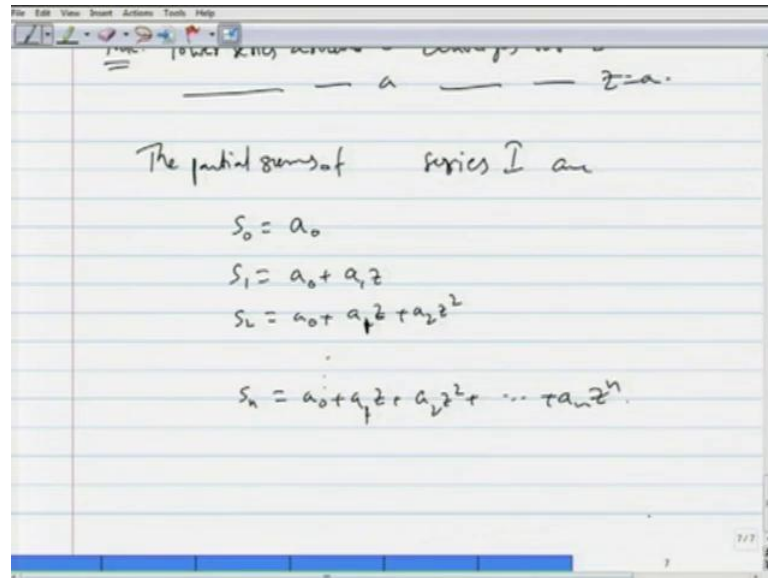 File Edit View Insert Actions Tools Help
Power series around
a z=a.
The partial sums of series I are
S₀ = a₀
S₁ = a₀ + a₁z
S₂ = a₀ + a₁z + a₂z²
⋮
Sₙ = a₀ + a₁z + a₂z² + ... + aₙzⁿ.
7/7
7